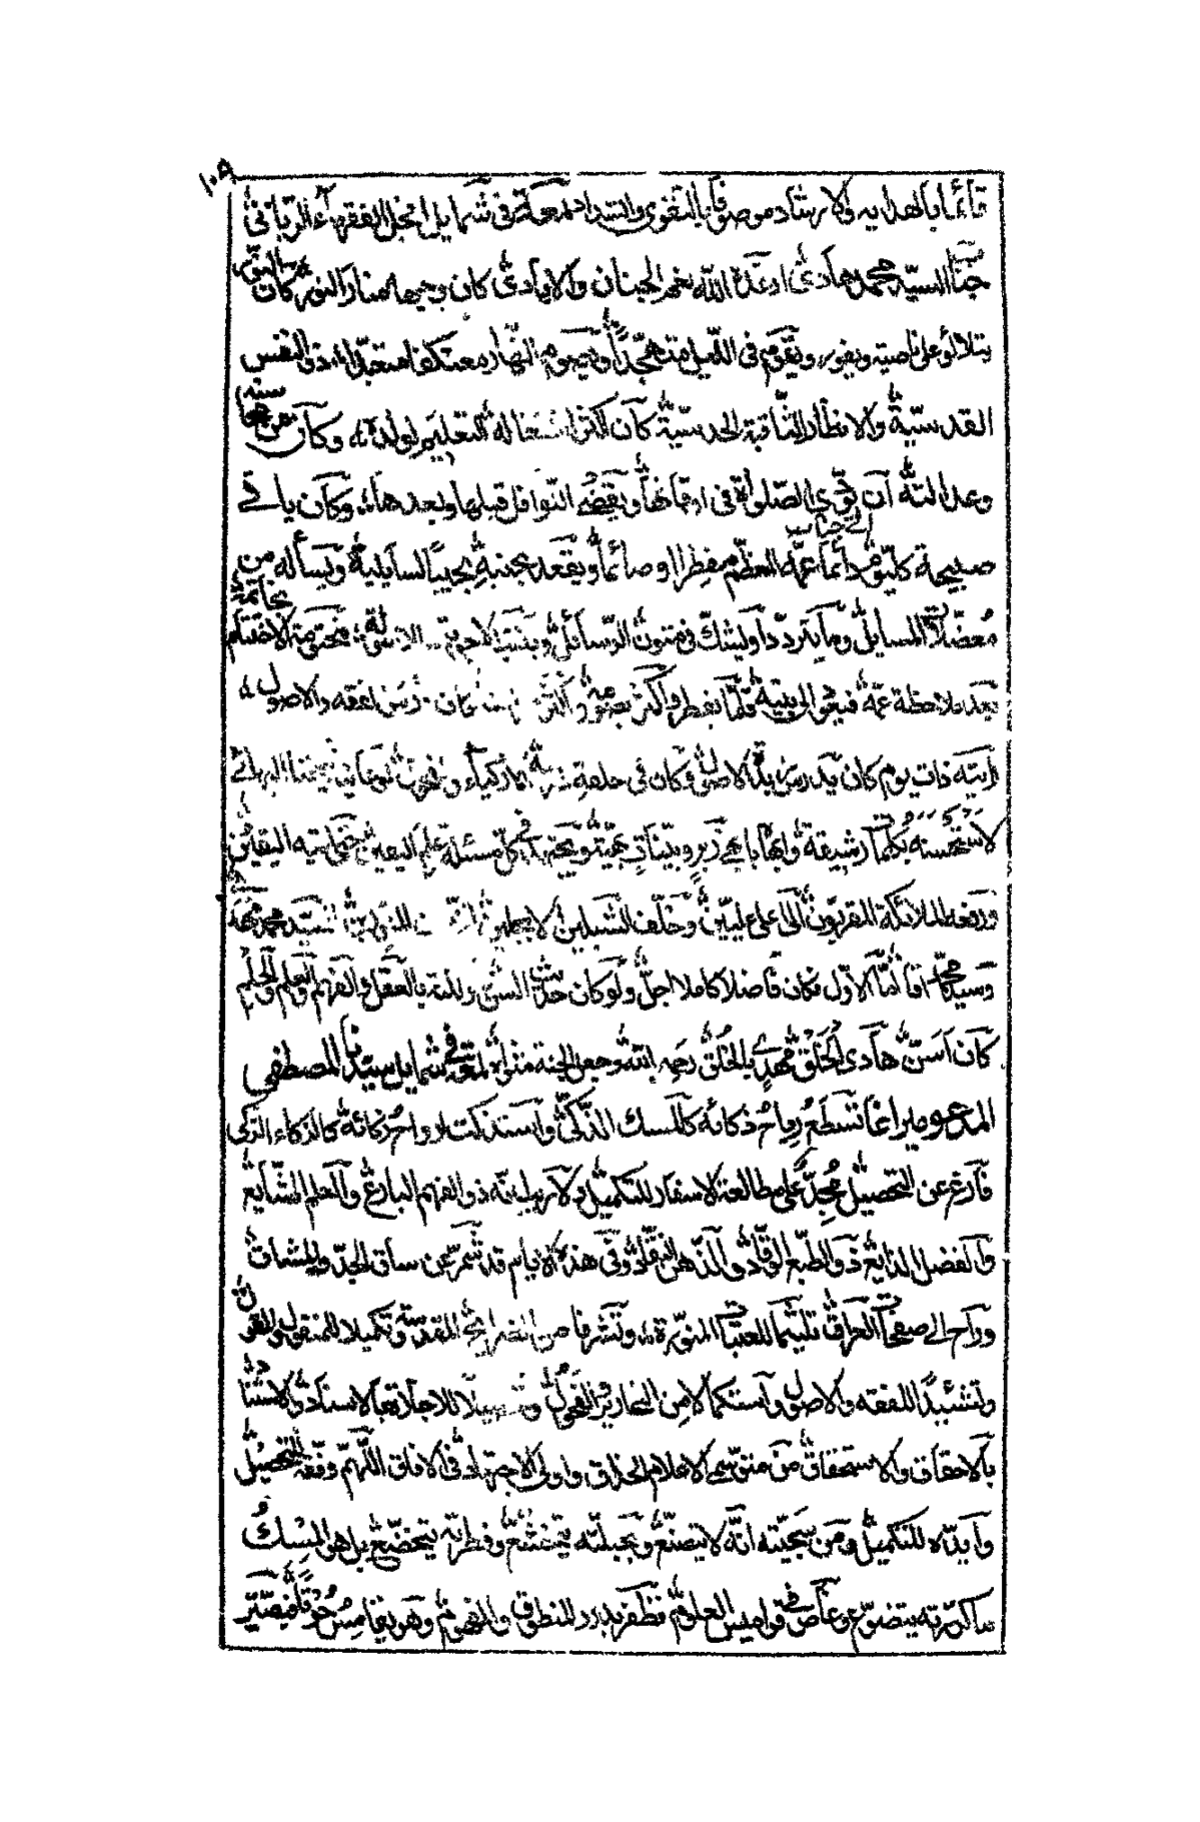 ١٠٩
قائما بالهدايه والارشاد موصوفا بالتقوى والسداد لمعة في شمايل انجل الفقهاء الربانى
جناب السيد محمد هادى ادخله الله بخير الجنان والايادى كان وجيها منار النور كان النور
يتلألؤ على ناصيته ويفور ويقوم فى الليل متهجدا ويصوم النهار معتكفا متعبدا ذو النفس
القدسية والانظار الثاقبة الحدسية كان اكثر اشتغاله التعليم لولدانه وكان من سنته
وعد الله ان يؤدى الصلواة فى اوقاتها ويقضى النوافل قبلها وبعدها وكان ياتى
صبيحة كل يوم دائما الى جناب عمه المعظم مفطرا او صائما ويقعد بجنبه مجيبا لسايليه ويسأله من
معضلات المسايل وما يتردد او يشك فى متون الرسائل ويكتب الاجوبة الاسئلة مختومة الاختتام بخاتمه
بعد ملاحظة عمه فيعود الى بيته قلما يفطر واكثر يصوم واكثر كان درس الفقه والاصول
رايته ذات يوم كان يدرس زبدة الاصول وكان فى حلقة الاذكياء شيخنا البهائى
لاستحسنه بكلمات رشيقة وابهاء باهى زبر وبينات عميقة مسئلة علم اليقين اليقين
ورفعه الملائكة المقربون الى اعلى عليين وخلف الشبلين السيد محمد
وسيد محمد اما الاول فكان فاضلا كاملا اجل ولو كان حديث السن ولكنه بالعقل والفهم والعلم والحلم
كان اسن هادى الخلق مهدى بالخلق رحمه الله وجعل الجنة مثواه لمعة فى شمايل سيدنا المصطفى
المدعو ميراغا تسطع رياح ذكائه كالمسك الذكى واستذكت ارواح زكائه كالذكاء الذكى
فارغ عن التحصيل مجد على مطالعة الاسفار للتكميل ولا ريب انه ذو الفهم البارع والعلم الشايع
والفضل الذايع ذو الطبع الوقاد والذهن النقاد وفى هذه الايام قد شمر عن ساق الجد والمشاق
وراح الى صفحات العراق تلثيما للعتبات المنورة وتشرفا من الضرايح المقدسة وتكميلا للمنقول والمعقول
وتشييدا للفقه والاصول واستكمالا من النحارير الفحول وتحصيلا للاجازة بالاسناد والاستناد
بالاحقاق والاستحقاق من متوسمى الاعلام الحذاق واولى الاجتهاد فى الافاق اللهم وفقه للتحصيل
وايده للتكميل ومن سجيته انه لا يتصنع وبجبلته يتخشع وفطرته يتخضع بل هو المسك
ما كررته يتضوع وغاص فى قواميس العلوم فظفر بدرر المنطوق والمفهوم وهو يغامس خوضا فيصير